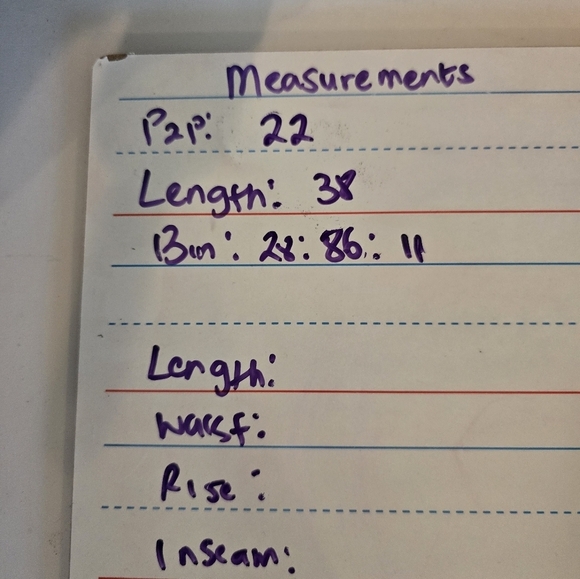 Measurements
P2P: 22
Length: 38
Bin: 28: 86: 11
Length:
Waist:
Rise:
Inseam: